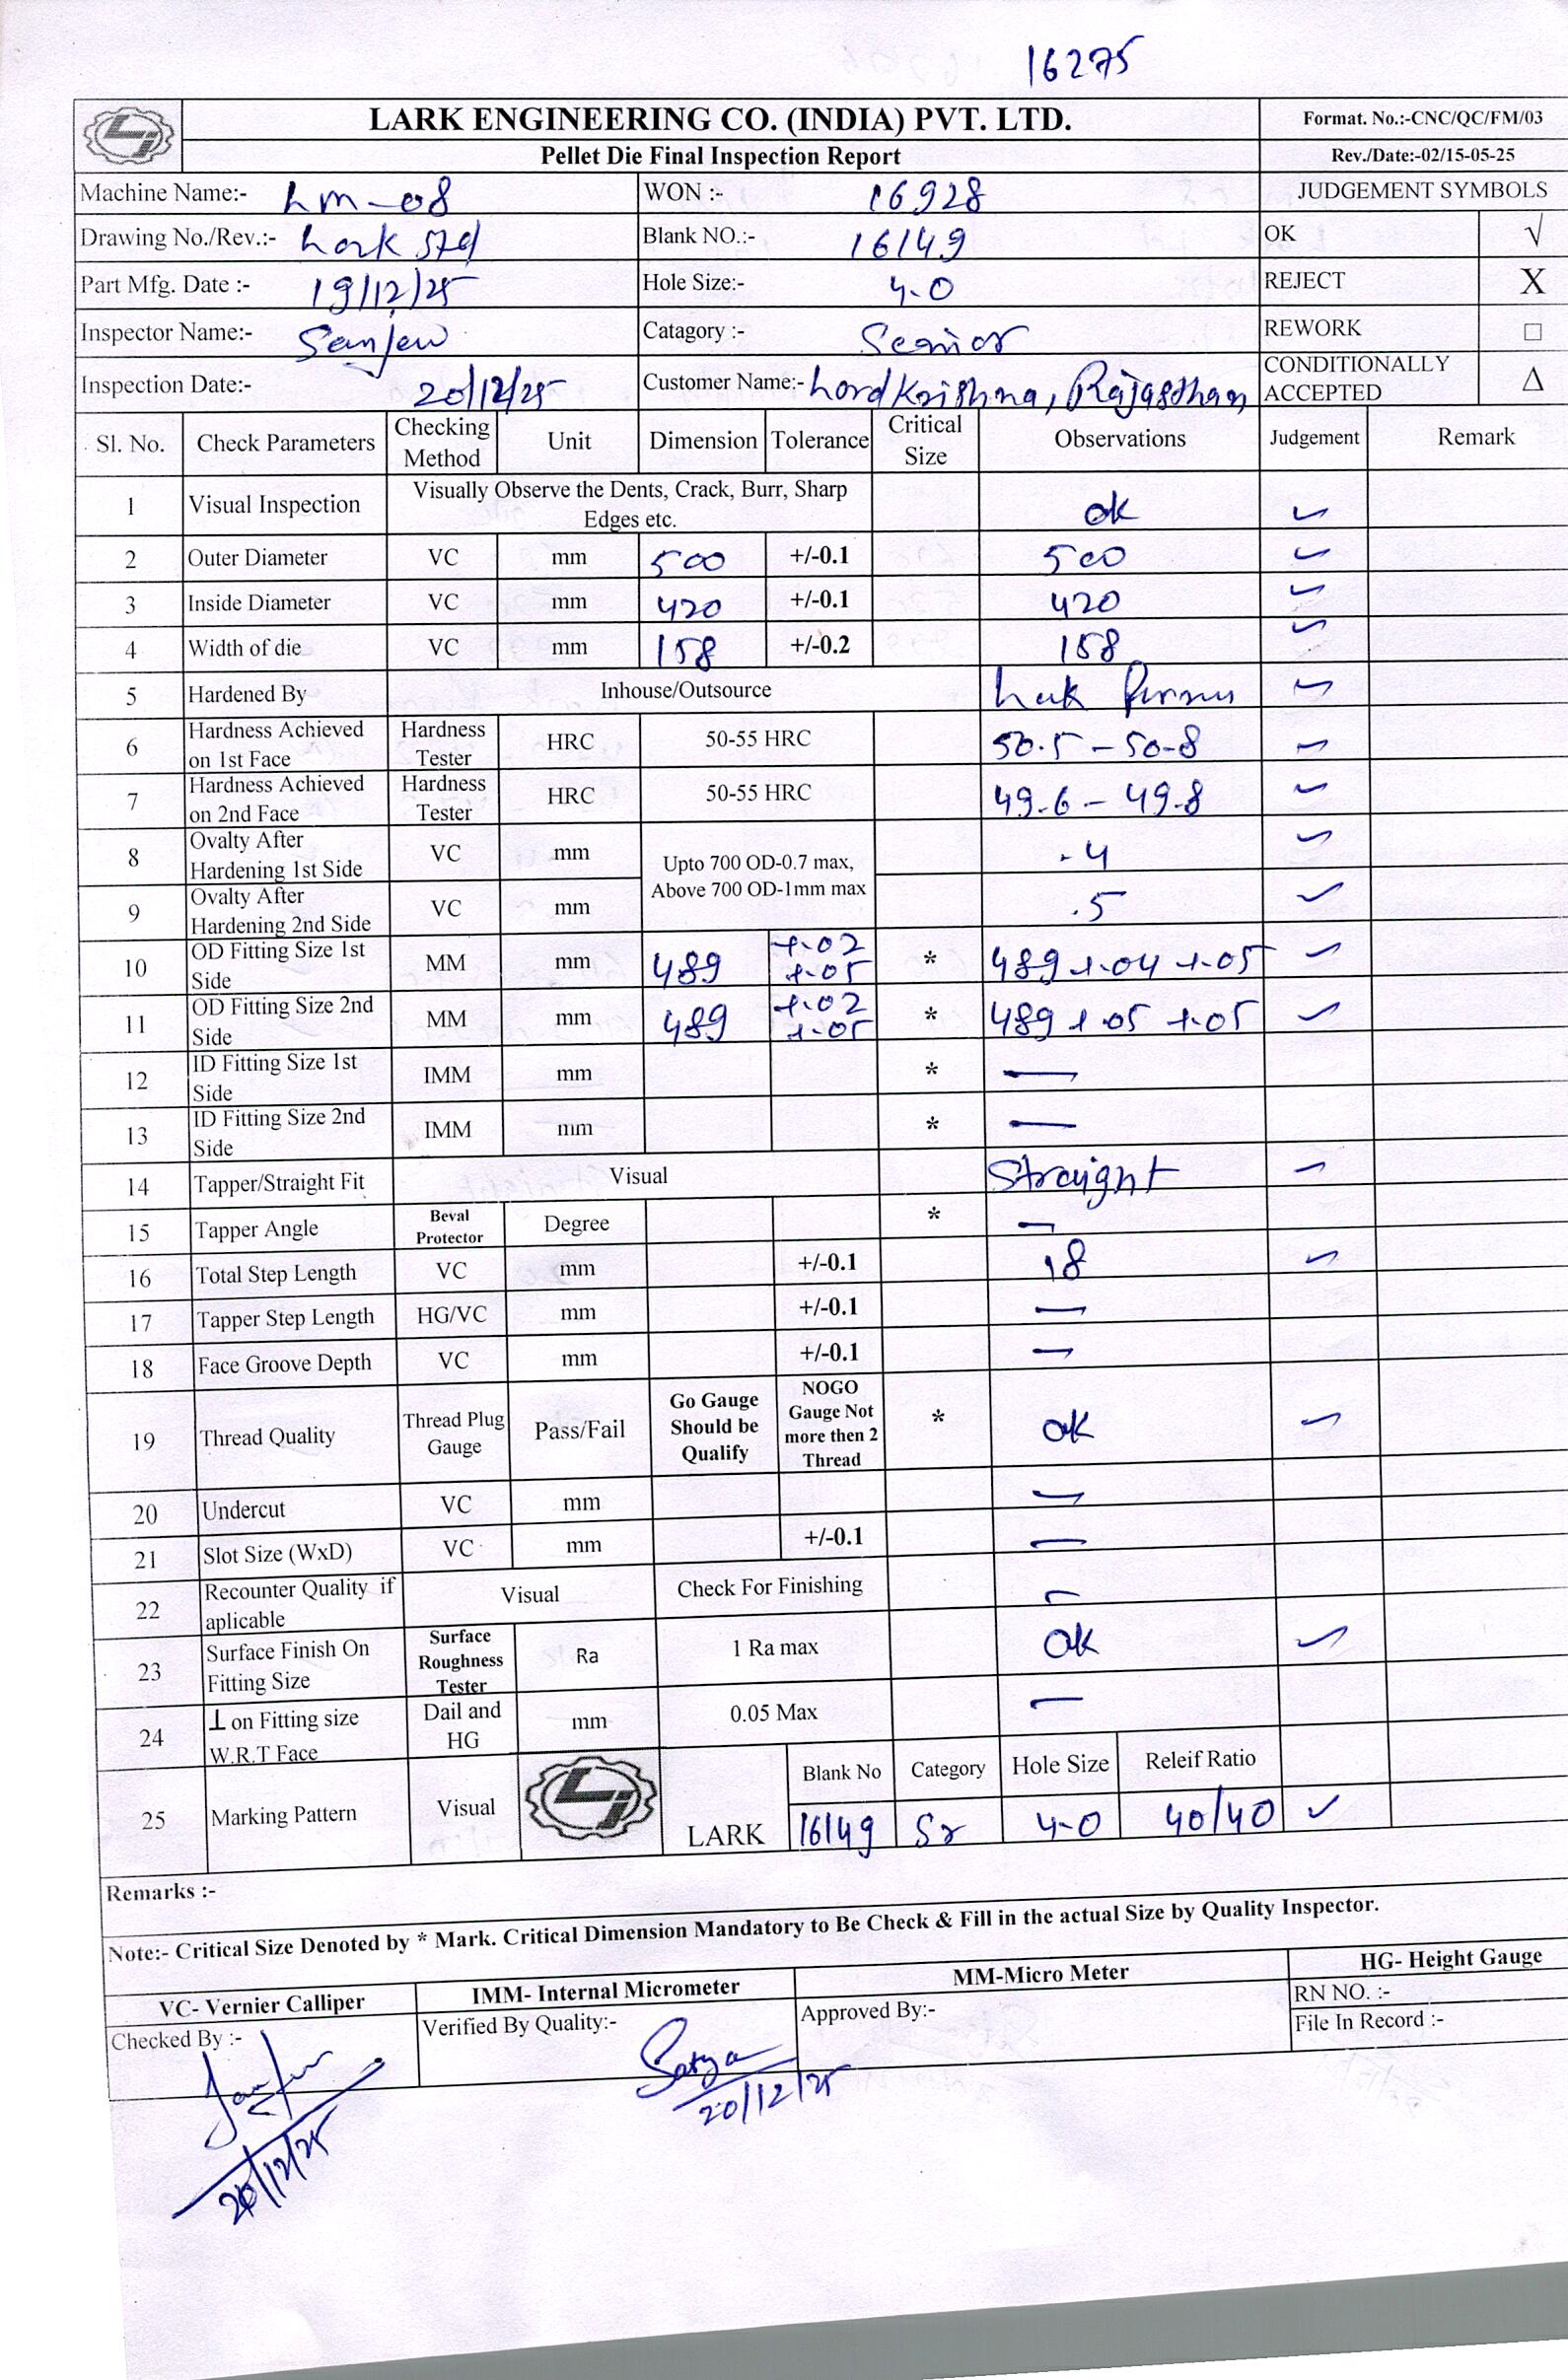 16275
LARK ENGINEERING CO. (INDIA) PVT. LTD.
Format. No.:-CNC/QC/FM/03
Pellet Die Final Inspection Report
Rev./Date:-02/15-05-25
Machine Name:- Lm-08 WON :- 16928 JUDGEMENT SYMBOLS
Drawing No./Rev.:- Lark std Blank NO.:- 16149 OK √
Part Mfg. Date :- 19/12/25 Hole Size:- 4.0 REJECT X
Inspector Name:- Sanjeev Catagory :- Senior REWORK □
Inspection Date:- 20/12/25 Customer Name:- Lord Krishna, Rajasthan CONDITIONALLY ACCEPTED Δ
Sl. No. Check Parameters Checking Method Unit Dimension Tolerance Critical Size Observations Judgement Remark
1 Visual Inspection Visually Observe the Dents, Crack, Burr, Sharp Edges etc. ok ✓
2 Outer Diameter VC mm 500 +/-0.1 500 ✓
3 Inside Diameter VC mm 420 +/-0.1 420 ✓
4 Width of die VC mm 158 +/-0.2 158 ✓
5 Hardened By Inhouse/Outsource ✓
6 Hardness Achieved on 1st Face Hardness Tester HRC 50-55 HRC 50.5 - 50.8 ✓
7 Hardness Achieved on 2nd Face Hardness Tester HRC 50-55 HRC 49.6 - 49.8 ✓
8 Ovalty After Hardening 1st Side VC mm Upto 700 OD-0.7 max, Above 700 OD-1mm max .4 ✓
9 Ovalty After Hardening 2nd Side VC mm .5 ✓
10 OD Fitting Size 1st Side MM mm 489 +.02 +.05 * 489 +.04 +.05 ✓
11 OD Fitting Size 2nd Side MM mm 489 +.02 +.05 * 489 +.05 +.05 ✓
12 ID Fitting Size 1st Side IMM mm * —
13 ID Fitting Size 2nd Side IMM mm * —
14 Tapper/Straight Fit Visual Straight ✓
15 Tapper Angle Beval Protector Degree * —
16 Total Step Length VC mm +/-0.1 18 ✓
17 Tapper Step Length HG/VC mm +/-0.1 —
18 Face Groove Depth VC mm +/-0.1 —
19 Thread Quality Thread Plug Gauge Pass/Fail Go Gauge Should be Qualify NOGO Gauge Not more then 2 Thread * ok ✓
20 Undercut VC mm —
21 Slot Size (WxD) VC mm +/-0.1 —
22 Recounter Quality if aplicable Visual Check For Finishing —
23 Surface Finish On Fitting Size Surface Roughness Tester Ra 1 Ra max ok ✓
24 ⊥ on Fitting size W.R.T Face Dail and HG mm 0.05 Max —
25 Marking Pattern Visual LARK Blank No Category Hole Size Releif Ratio
16149 Sr 4.0 40/40 ✓
Remarks :-
Note:- Critical Size Denoted by * Mark. Critical Dimension Mandatory to Be Check & Fill in the actual Size by Quality Inspector.
VC- Vernier Calliper IMM- Internal Micrometer MM-Micro Meter HG- Height Gauge
Checked By :- Verified By Quality:- Approved By:- RN NO. :-
File In Record :-
Satya
20/12/25
20/12/25